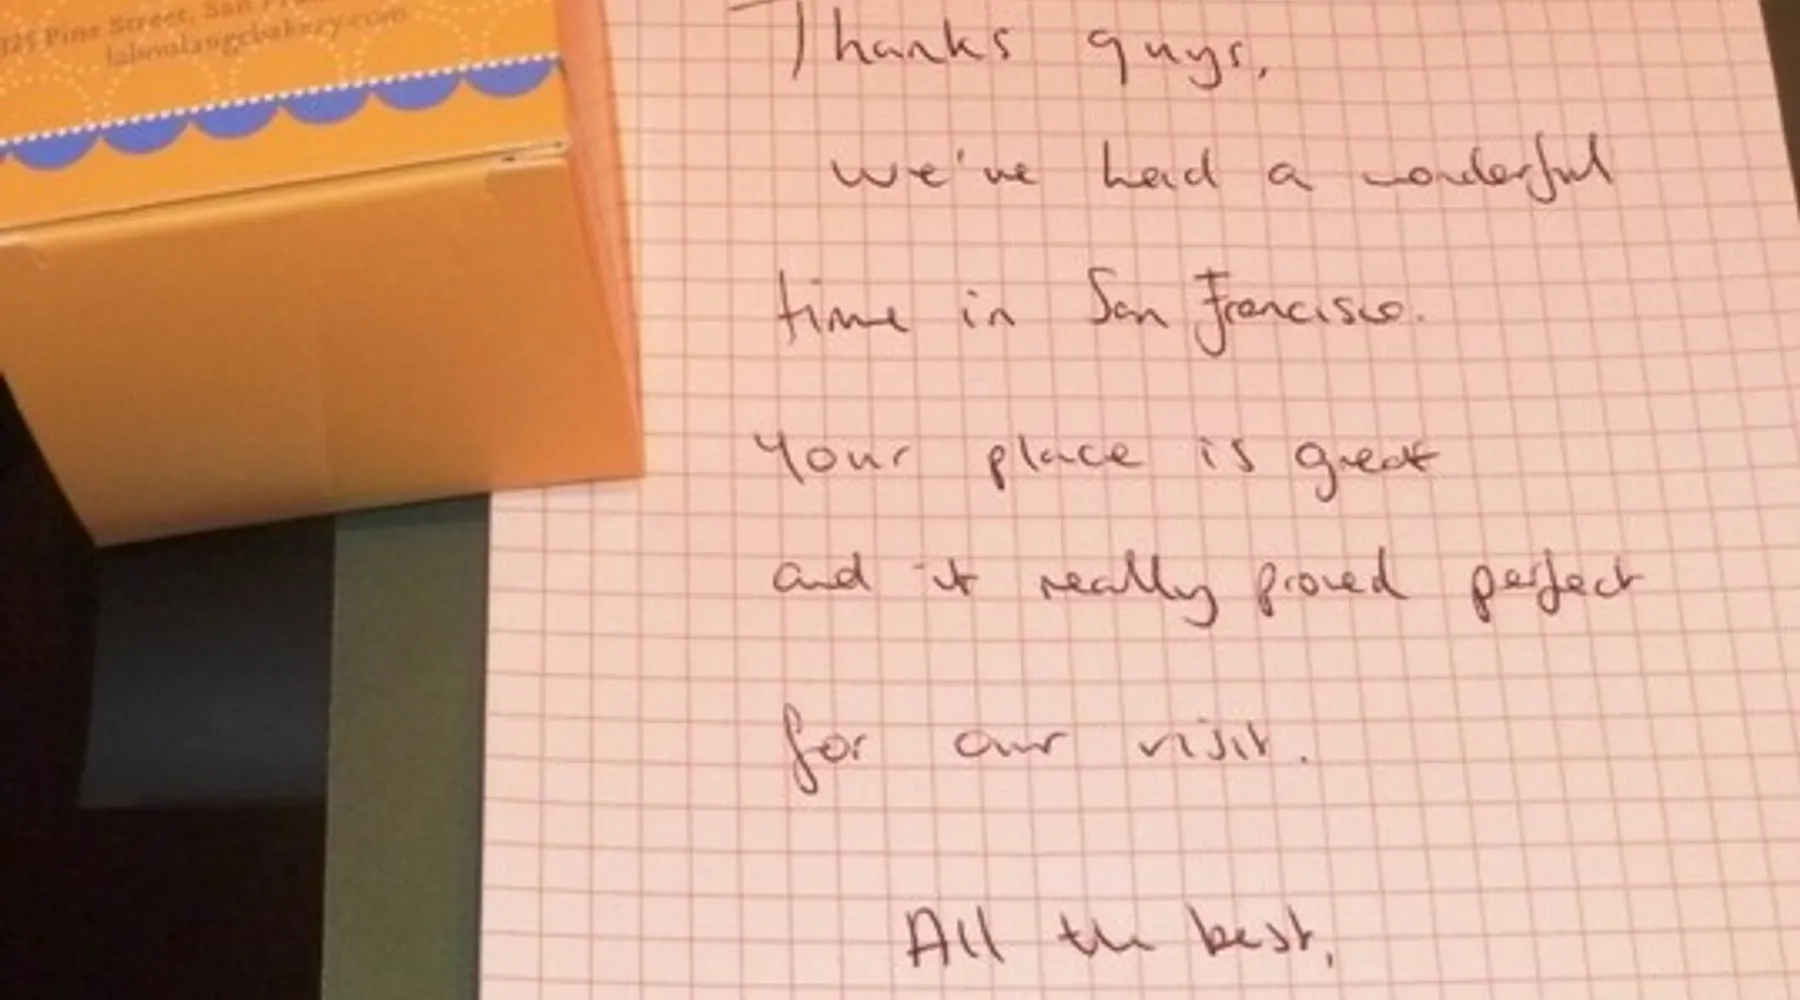 325 Pine Street, San
laboulangebakery.com
Thanks guys,
we've had a wonderful
time in San Francisco.
Your place is great
and it really proved perfect
for our visit.
All the best,